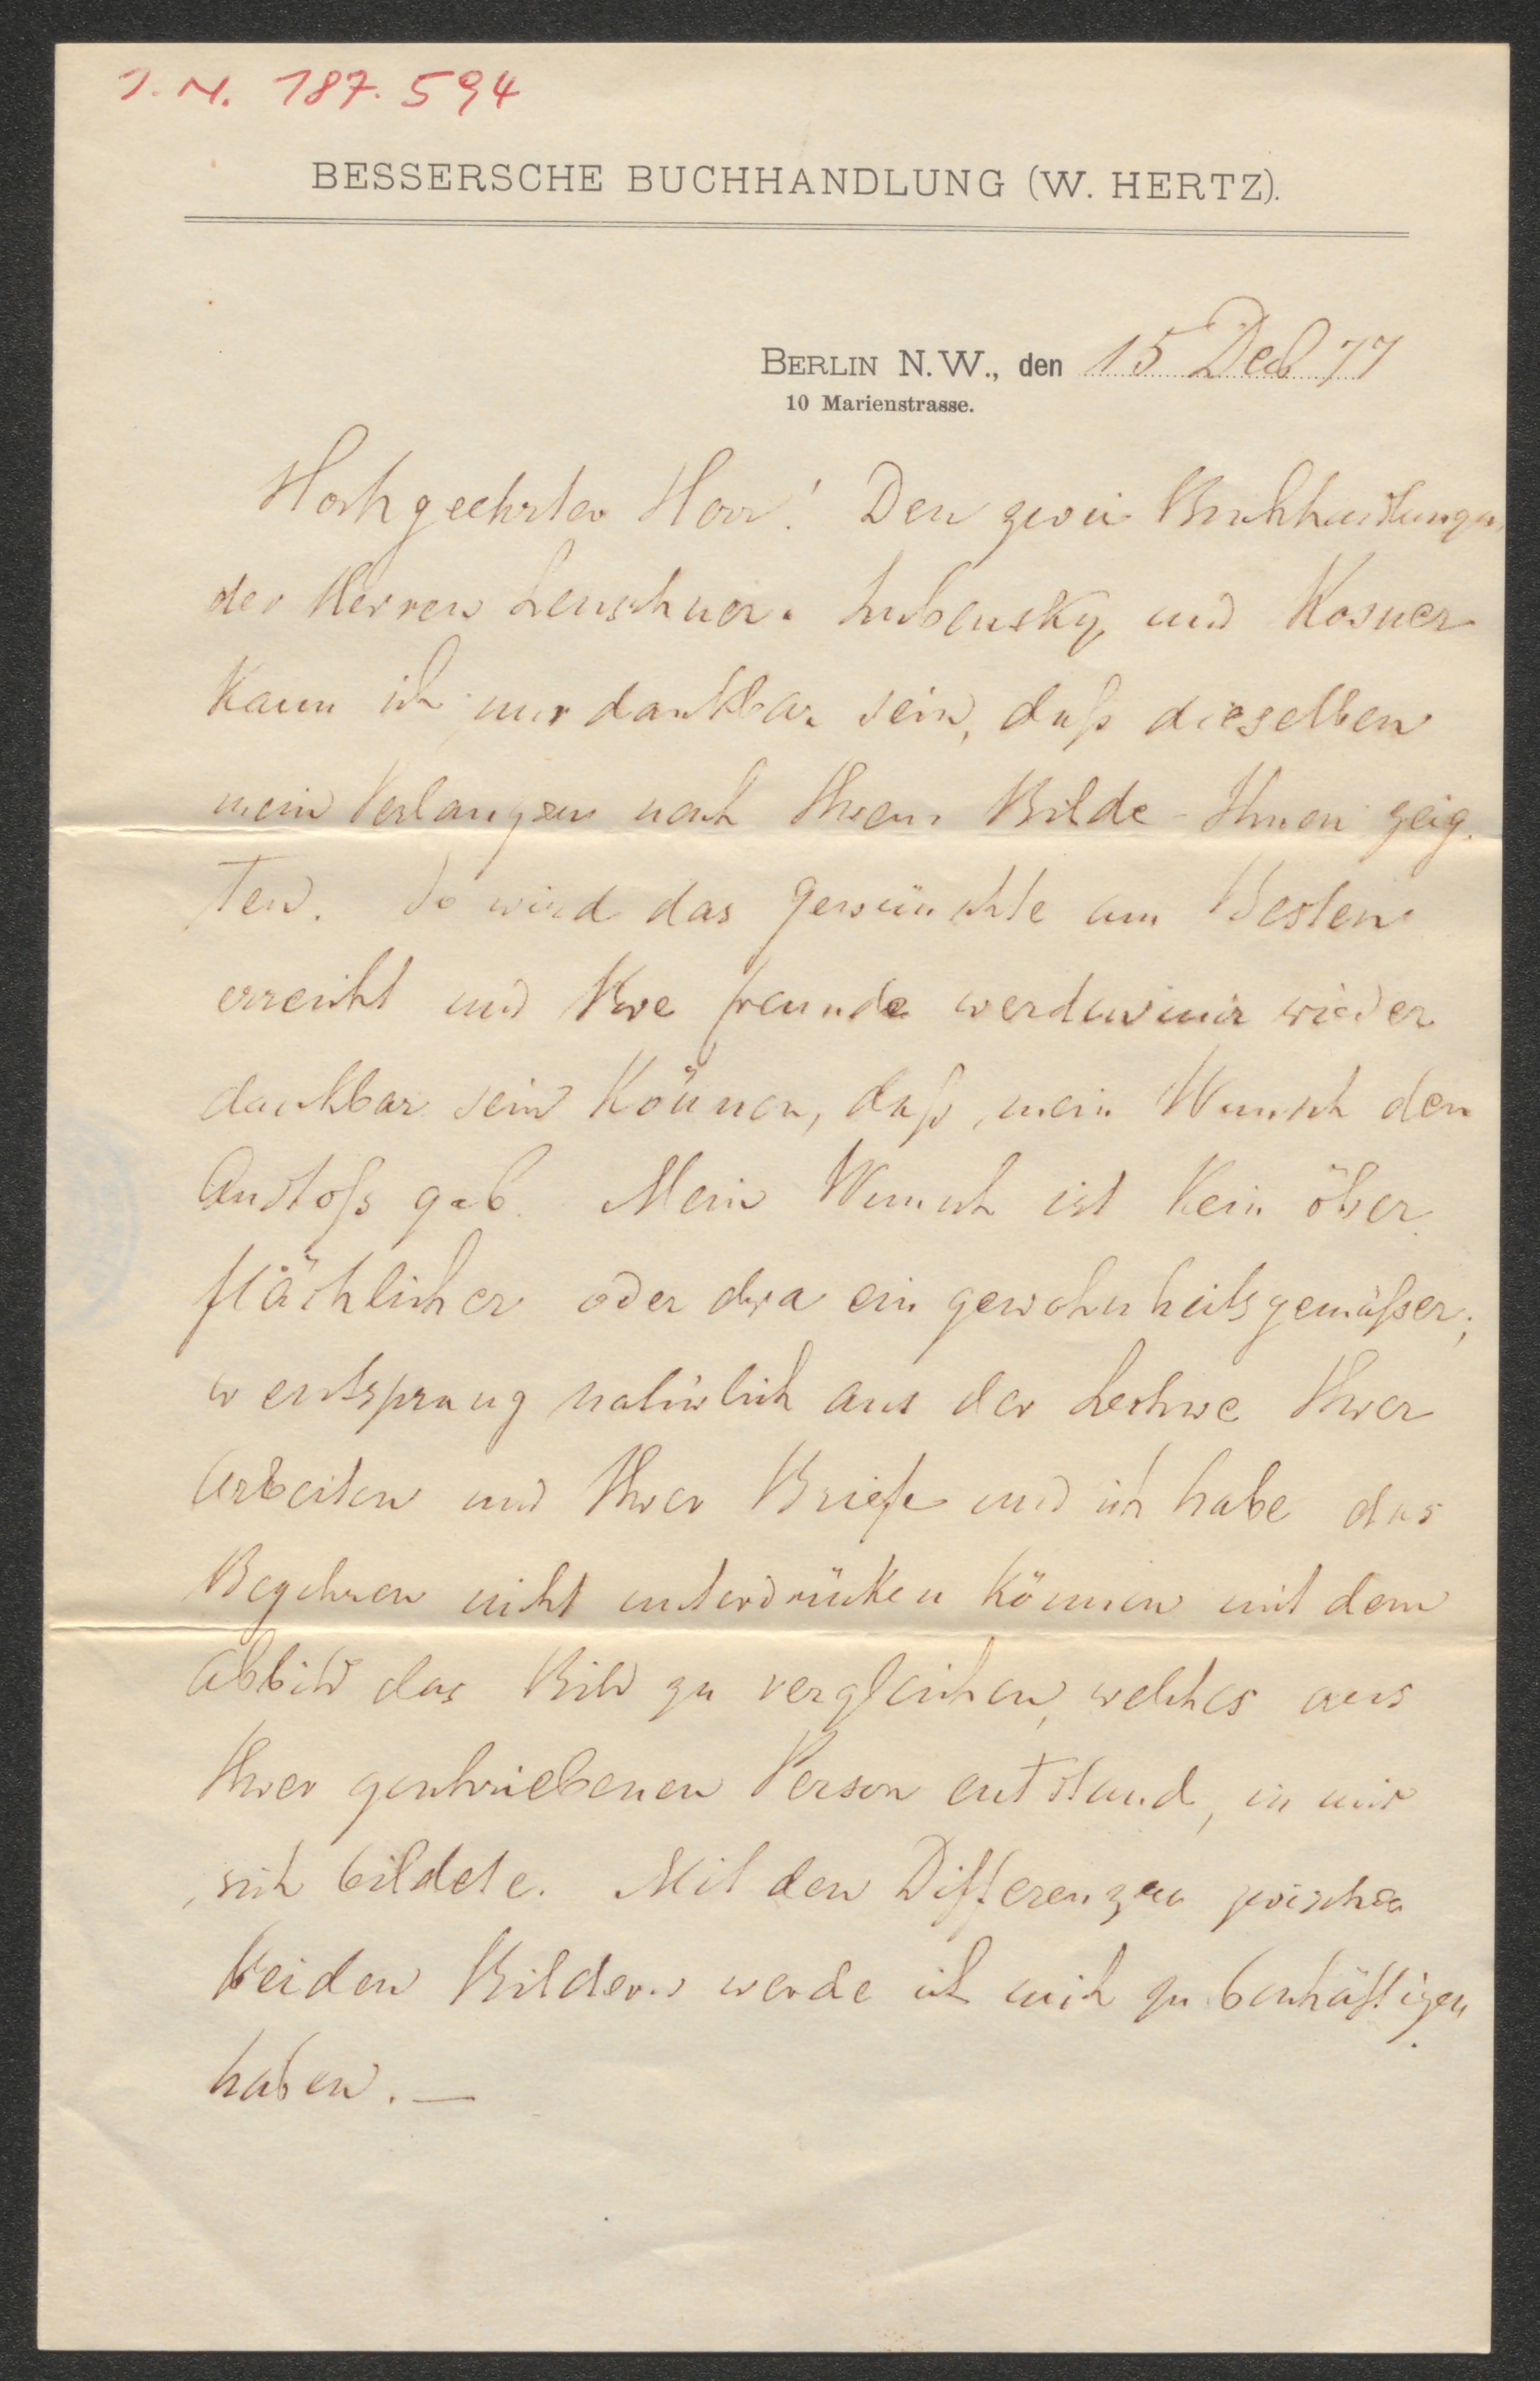 I. N. 187.594
BESSERSCHE BUCHHANDLUNG (W. HERTZ).
BERLIN N.W., den 15 Dec 77
10 Marienstrasse.
Hochgeehrter Herr! Den zwei Buchhandlungen
der Herren Leuschner & Lubensky und Rosner
kann ich nur dankbar sein, daß dieselben
mein Verlangen nach Ihrem Bilde Ihnen zeig-
ten. So wird das Gewünschte am Besten
erreicht und Ihre Freunde werden mir wieder
dankbar sein können, daß mein Wunsch den
Anstoß gab. Mein Wunsch ist kein ober-
flächlicher oder etwa ein gewohnheitsgemäßer;
er entsprang natürlich aus der Lectüre Ihrer
Arbeiten und Ihrer Briefe und ich habe das
Begehren nicht unterdrücken können mit dem
Abbild das Bild zu vergleichen, welches aus
Ihrer geschriebenen Person entstand, in mir
sich bildete. Mit den Differenzen zwischen
beiden Bildern werde ich mich zu beschäftigen
haben. —